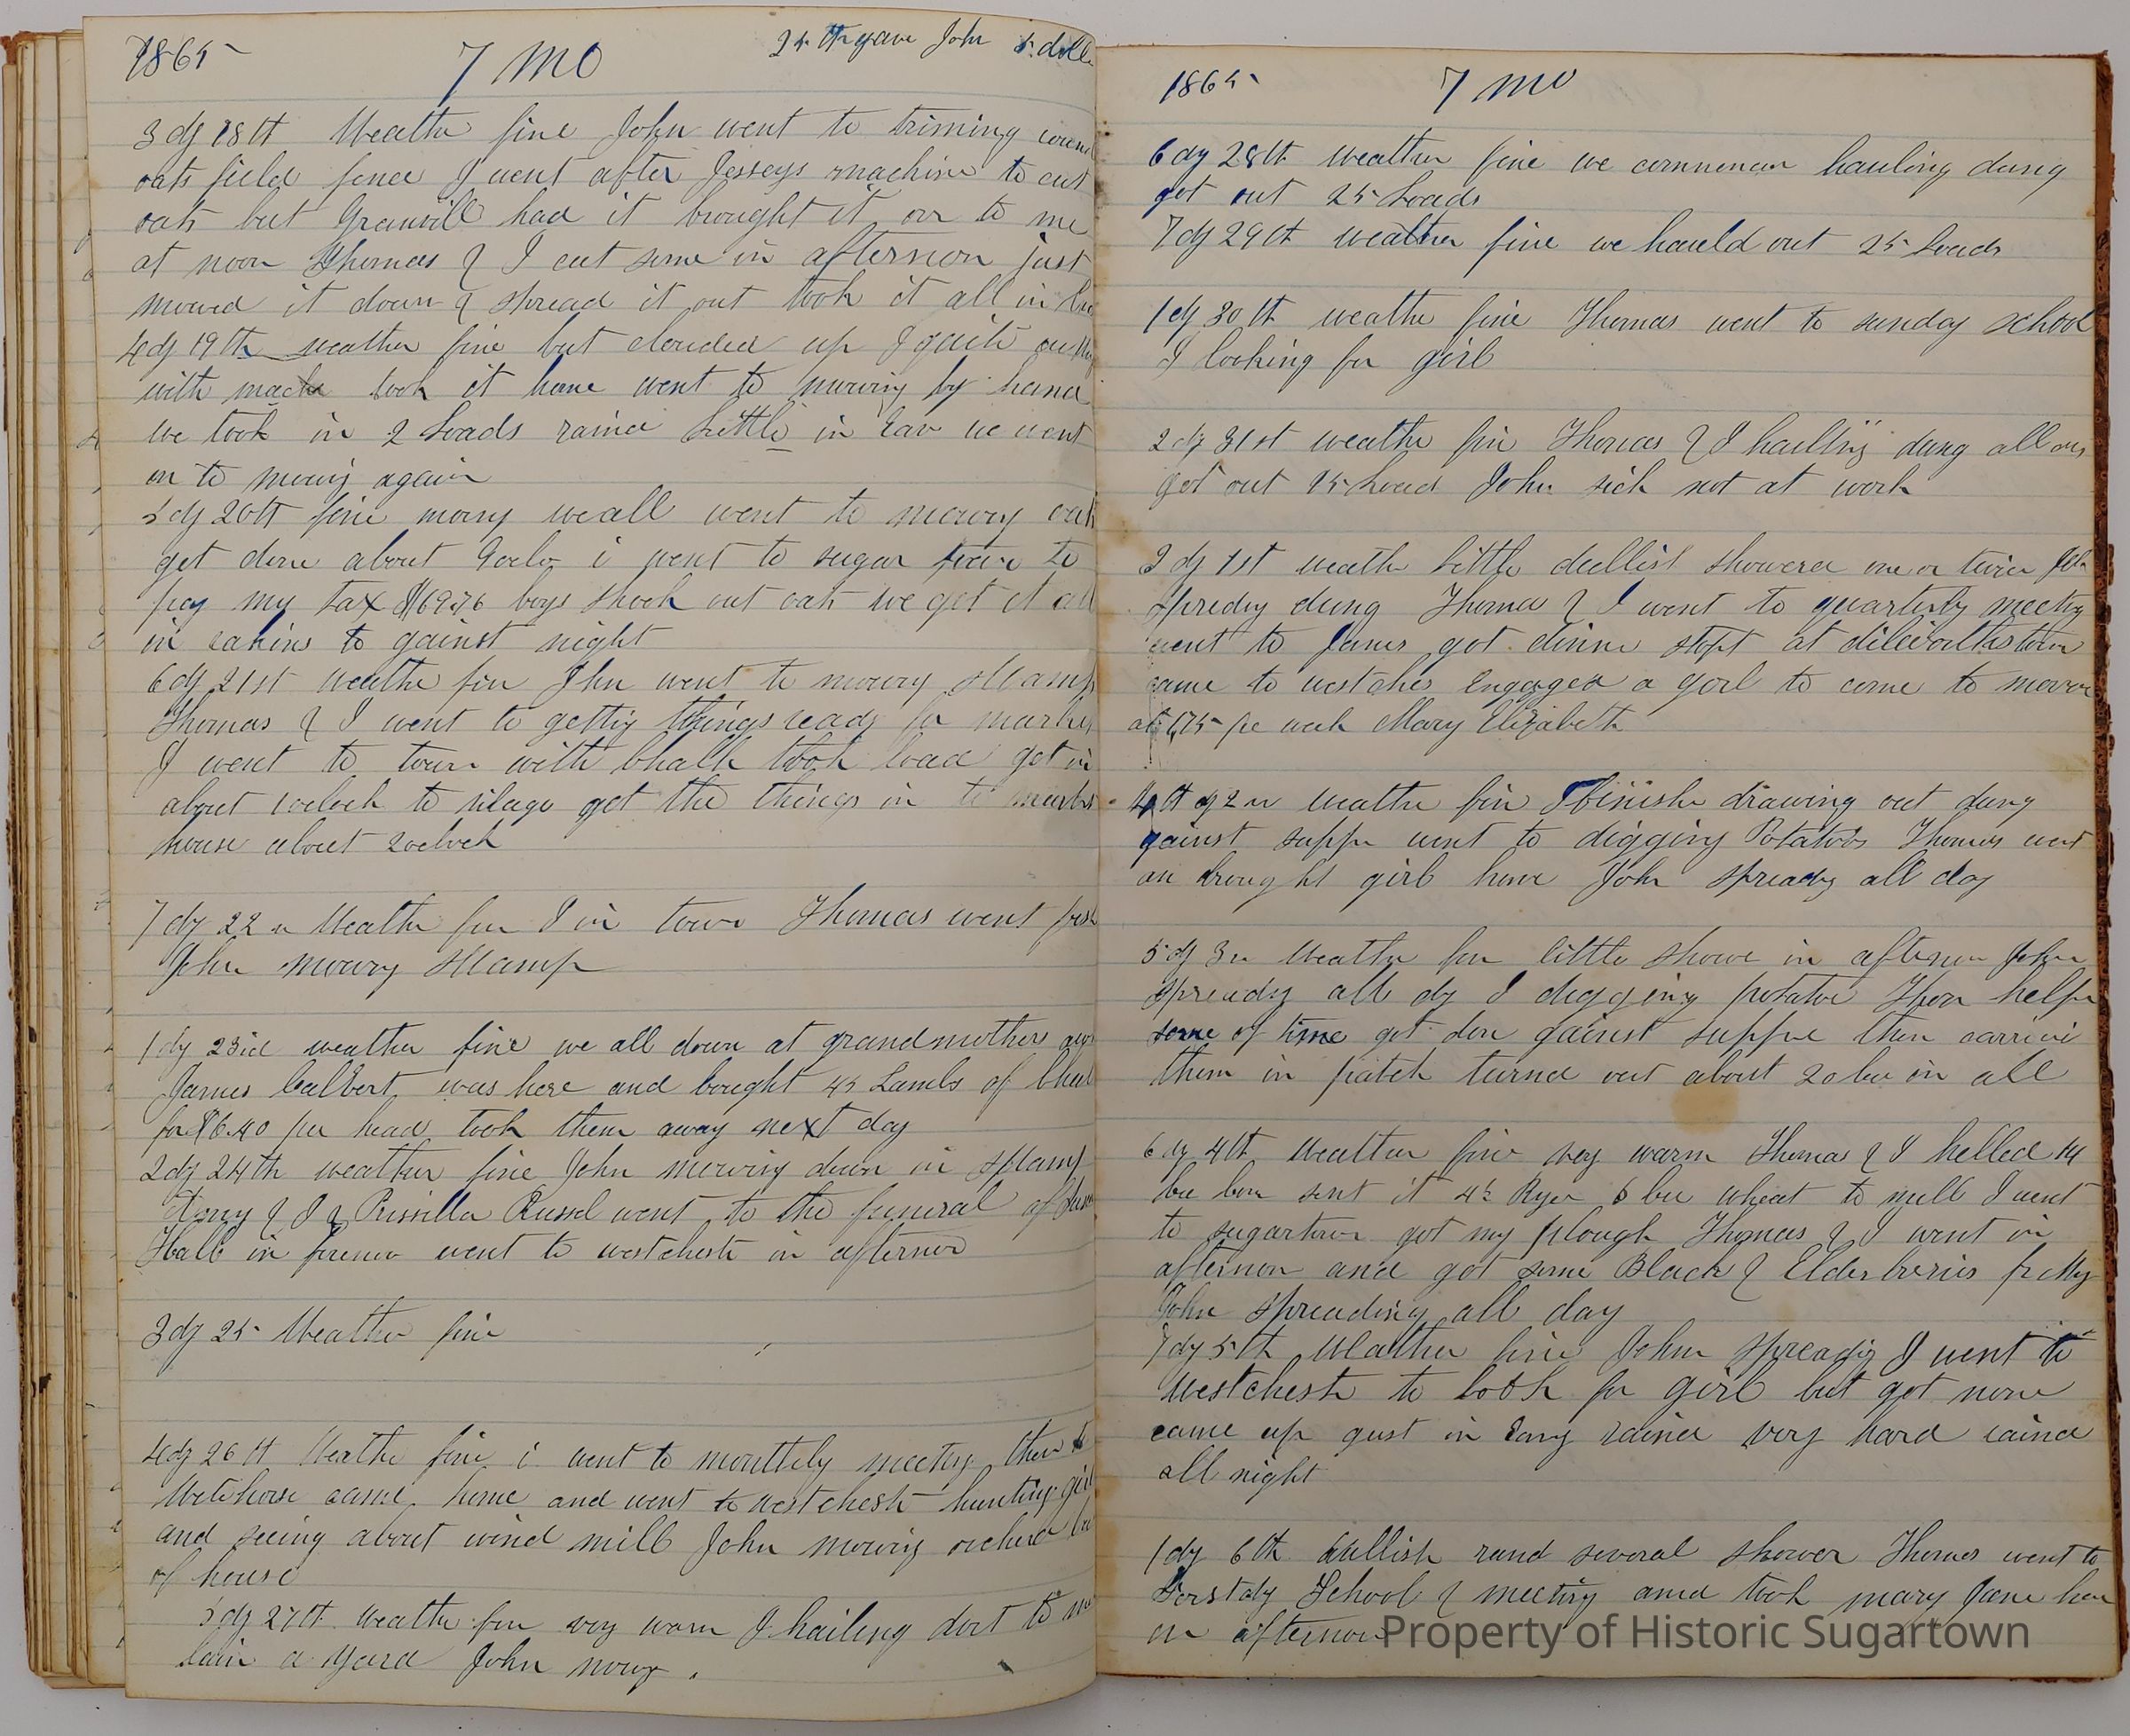 1865
7 MO
25th gave John 5 doll
3 dy 18th Weathe fine John went to triming
oats field fence I went after Jesseys machine to cut
oats but Granvill had it brought it ovr to me
at noon Thomas & I cut some in afternoon just
mowed it down & spread it out took it all in
4 dy 19th weather fine but clouded up I quit
with mach took it home went to mowing by hand
we took in 2 Loads raind Little in Eav we went
on to mowing again
5 dy 20th fine morng we all went to mowing
get done about 9 oclo i went to sugar town to
pay my tax $69.76 boys shook out oats we got it all
in to gainst night
6 dy 21st weathe fin Jhn went to mowing
Thomas & I went to gettig things ready for market
I went to town with took load got in
about oclock to got the things in to market
house about 2 oclock
7 dy 22 n Weathe fin I in town Thomas went
John mowing
1 dy 23id weather fine we all down at grandmothers
James Calbert was here and bought 45 Lambs of
for $6.40 per head took them away next day
2 dy 24th weather fine John mowing down in
& I & Prissilla Russel went to the funeral of
Hall in went to westcheste in afternoo
3 dy 25 Weathe fine
4 dy 26th Weathe fine i went to monttely meetig then to
came home and went to westchesh hunting girl
and seeing about wind mill John mowing orchard
of house
5 dy 27th weathe fin very warm I hailing dort to
a yard John mowg
1865
7 mo
6 dy 28th weather fine we commence hauling dung
got out 25 Loads
7 dy 29th weather fine we hauld out 25 Loads
1 dy 30th weathe fine Thomas went to sunday school
I looking for girl
2 dy 31st weathe fin Thomas & I hailling dung all
got out 15 Load John sick not at work
3 dy 1st weathe Little dullish showerd one or twice
spredig dung Thomas & I went to quarterly meetig
went to James got dinne stopt at dilworthstown
came to westches Engaged a girl to come to
at 1,75 pe week Mary Elizabeth
dy 2 n weathe fin finishe drawing out dung
gainst suppe went to digging Potatoes Thomas went
an brought girl home John spreadg all day
5 dy 3 n Weathe fin little showe in afternon John
spreadg all dy I digging potatoe help
some of time got don gainst suppe then
them in patch turnd out about 20 bu in all
6 dy 4th weather fine very warm Thomas & I
sent it 6 bu wheat to mill I went
to sugartown got my plough Thomas & I went in
afternon and got some Black & Elder berries
John spreading all day
7 dy 5th Weather fine John spreadig I went to
westchesh to look for girl but got none
came up gust in Eavg raind very hard raind
all night
1 dy 6th dullish rand several shower Thomas went to
School & meeting and took mary Jane
in afternoon
Property of Historic Sugartown